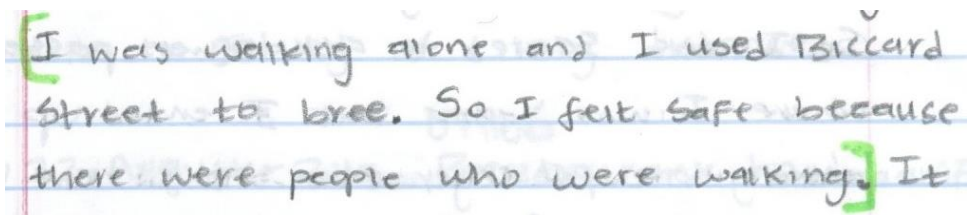 [I was walking alone and I used Biccard
Street to bree. So I felt safe because
there were people who were walking.] It